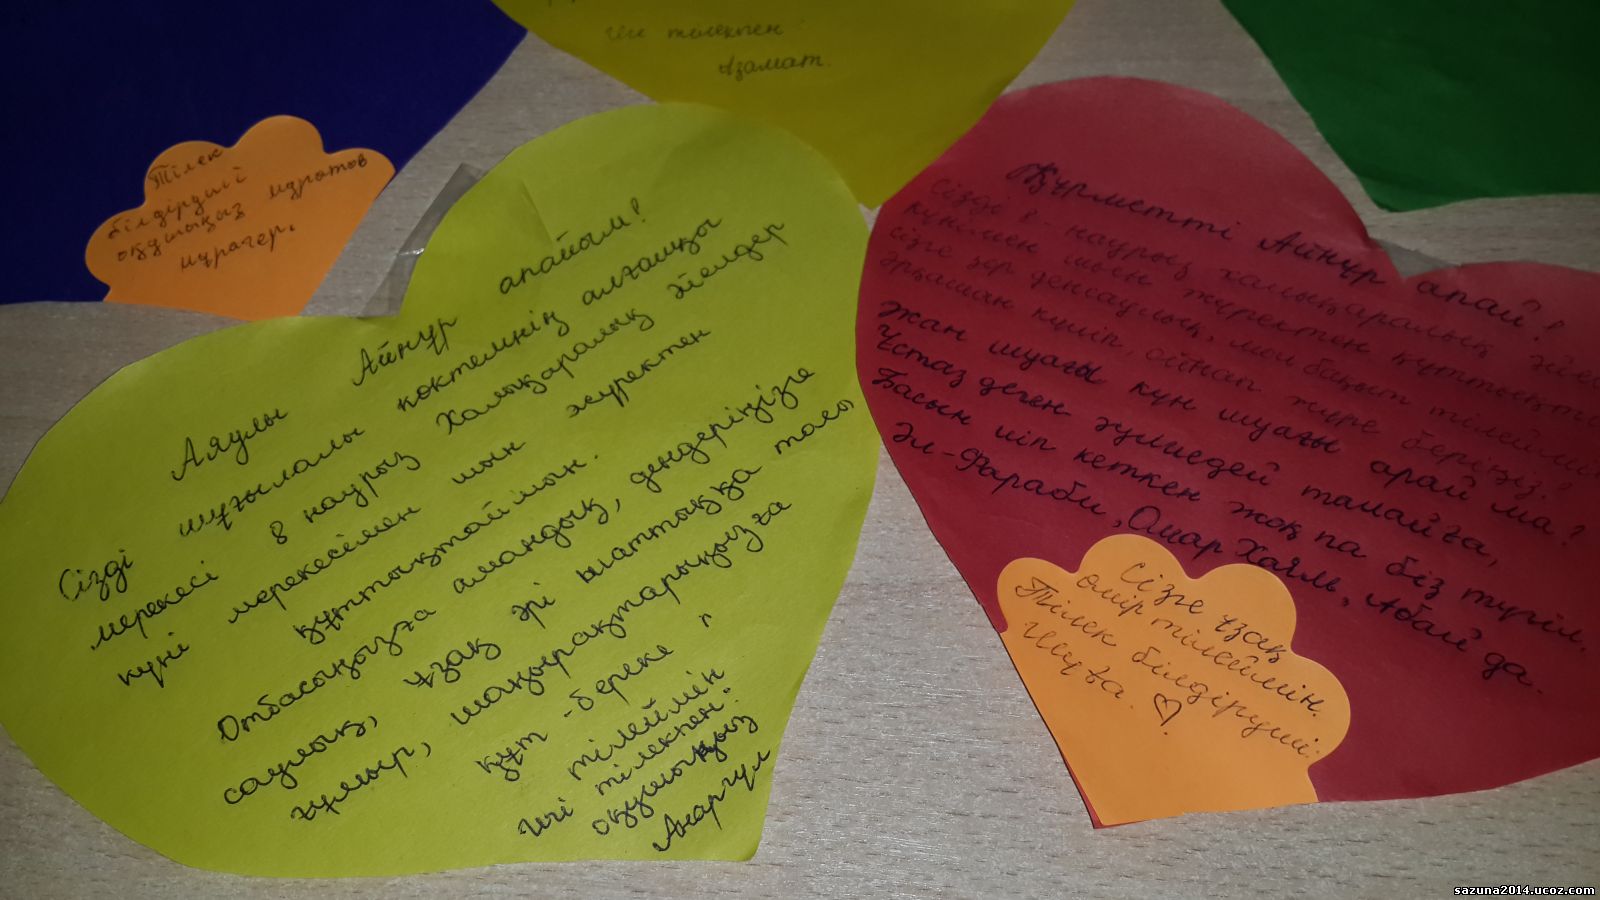 Ізгі тілекпен:
Азамат.
Тілек
білдіруші
оқушыңыз Мұратов
Нұрагер.
Аяулы Айнұр апайым!
Сізді шуғылалы көктемнің алғашқы
мерекесі 8 наурыз Халықаралық әйелдер
күні мерекесімен шын жүректен
құттықтаймын.
Отбасыңызға амандық, дендеріңізге
саулық, ұзақ әрі шаттыққа толы
ғұмыр, шаңырақтарыңызға
құт-береке
тілеймін
Ізгі тілекпен:
оқушыңыз
Анаргүл
Құрметті Айнұр апай!
Сізді 8-наурыз халықаралық
күнімен шын жүректен
сізге зор денсаулық, мол бақыт тілеймін
әрқашан күліп, ойнап жүре беріңіз!
Жан шуағы күн шуағы арай ма?
Ұстаз деген әулиедей тамайға,
Басын иіп кеткен жоқ па біз түгіл,
Әл-Фараби, Омар Хаям, Абай да.
Сізге ұзақ
өмір тілеймін.
Тілек білдіруші:
♡
sazuna2014.ucoz.com